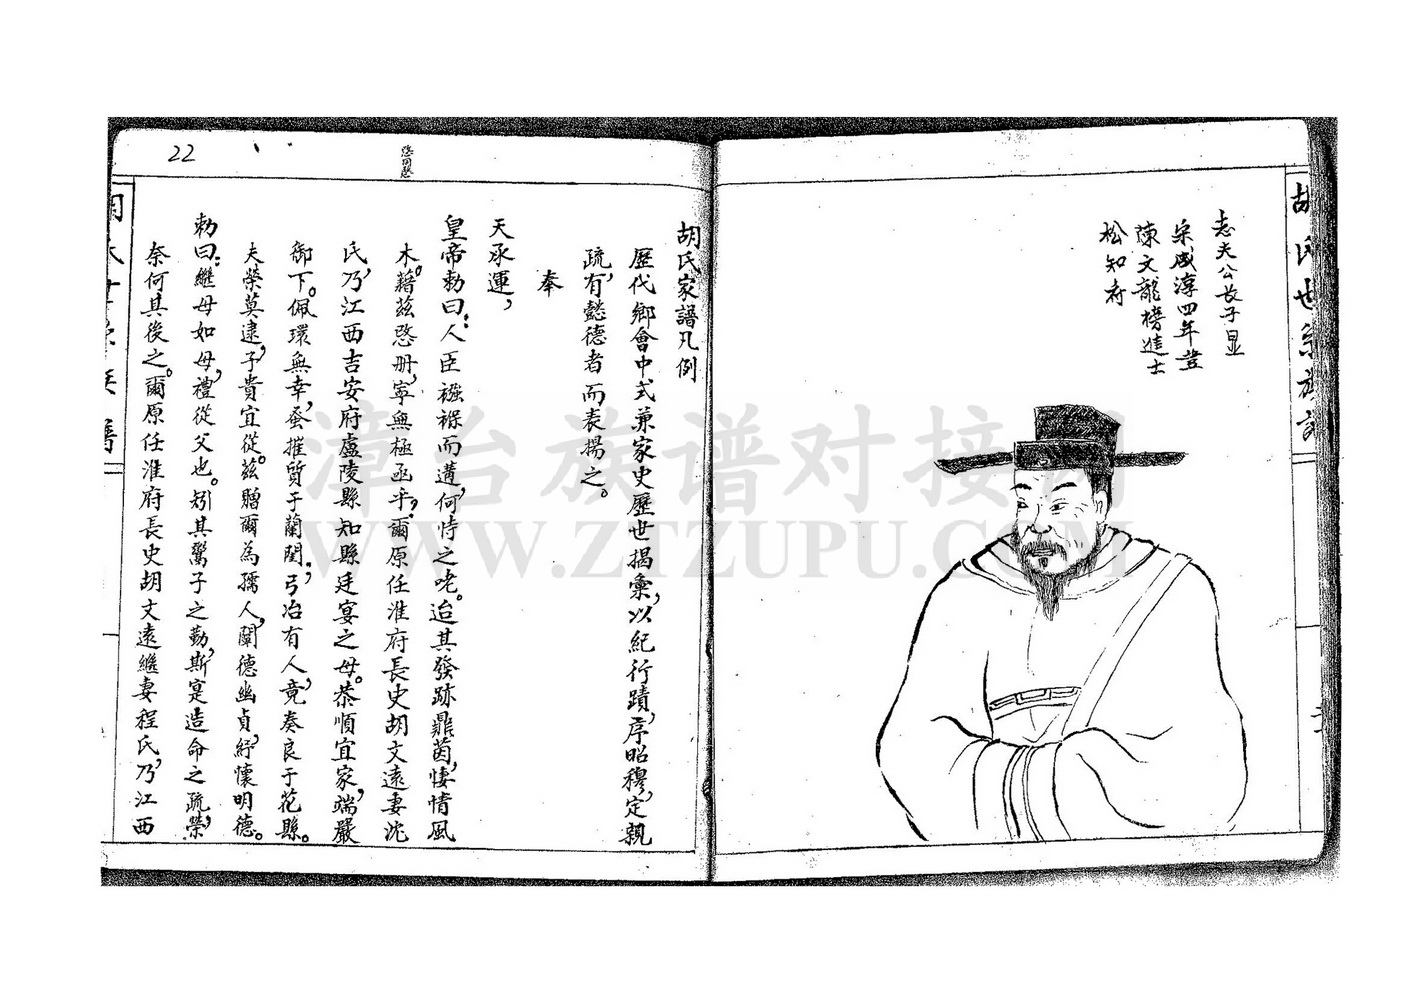 胡氏世宗族譜
志夫公長子显
宋咸淳四年登
陳文龍榜進士
松知府
胡氏家譜凡例
歷代鄉會中式兼家史歷世揭彙，以紀行蹟，序昭穆，定親
疏，有懿德者而表揚之。
奉
天承運，
皇帝勅曰：人臣襁褓而遘，何恃之咾。迨其發跡鼎茵，悽情風
木。藉茲愍册，寧無極函乎，爾原任淮府長史胡文遠妻沈
氏，乃江西吉安府盧陵縣知縣廷宴之母。恭順宜家，端嚴
御下。佩環無幸，蚤摧質于蘭閨；弓冶有人，竟奏良于花縣。
夫榮莫逮，子貴宜從。茲贈爾為孺人，闡德幽貞，紓懷明德。
勅曰：繼母如母，禮從父也。矧其鬻子之勤，斯寔造命之疏榮，
奈何其後之。爾原任淮府長史胡文遠繼妻程氏，乃江西
愍同愍
22
漳台族谱对接网
WWW.ZTZUPU.COM